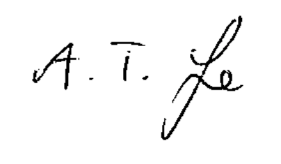 A. T. Le